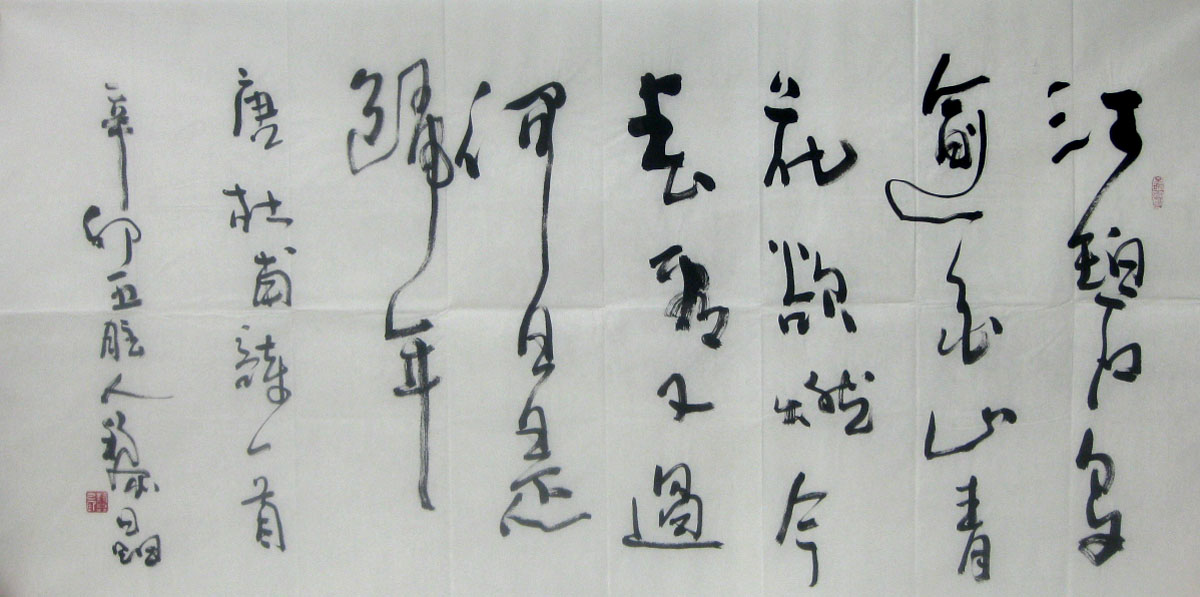 江碧鳥
逾白山青
花欲燃今
春看又過
何日是
歸年
唐杜甫詩一首
辛卯